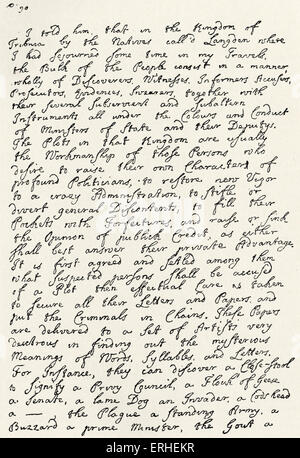 p. 90
I told him, that in the Kingdom of
Tribnia by the Natives call'd Langden where
I had sojourned some time in my Travels,
the Bulk of the People consist in a manner
wholly of Discoverers, Witnesses, Informers Accusers,
Prosecutors, Evidences, Swearers, together with
their several Subservient and Subaltern
Instruments all under the Colours and Conduct
of Ministers of State and their Deputys.
The Plots in that Kingdom are usually
the Workmanship of those Persons who
desire to raise their own Characters of
profound Politicians; to restore new Vigor
to a crazy Administration, to stifle or
divert general Discontents, to fill their
Pockets with Forfeitures, and raise or sink
the Opinion of publick Credit, as either
shall best answer their private Advantage.
It is first agreed and settled among them
what suspected persons shall be accused
of a Plot then effectual Care is taken
to secure all their Letters and Papers, and
put the Criminals in Chains. These Papers
are delivered to a Set of Artists very
dextrous in finding out the mysterious
Meanings of Words, Syllables, and Letters.
For Instance, they can discover a Close-stool
to signify a Privy Council, a Flock of Geese
a Senate, a lame Dog an Invader, a Codshead
a —— the Plague a standing Army, a
Buzzard a prime Minister, the Gout a
alamy
Image ID: ERHEKR
www.alamy.com